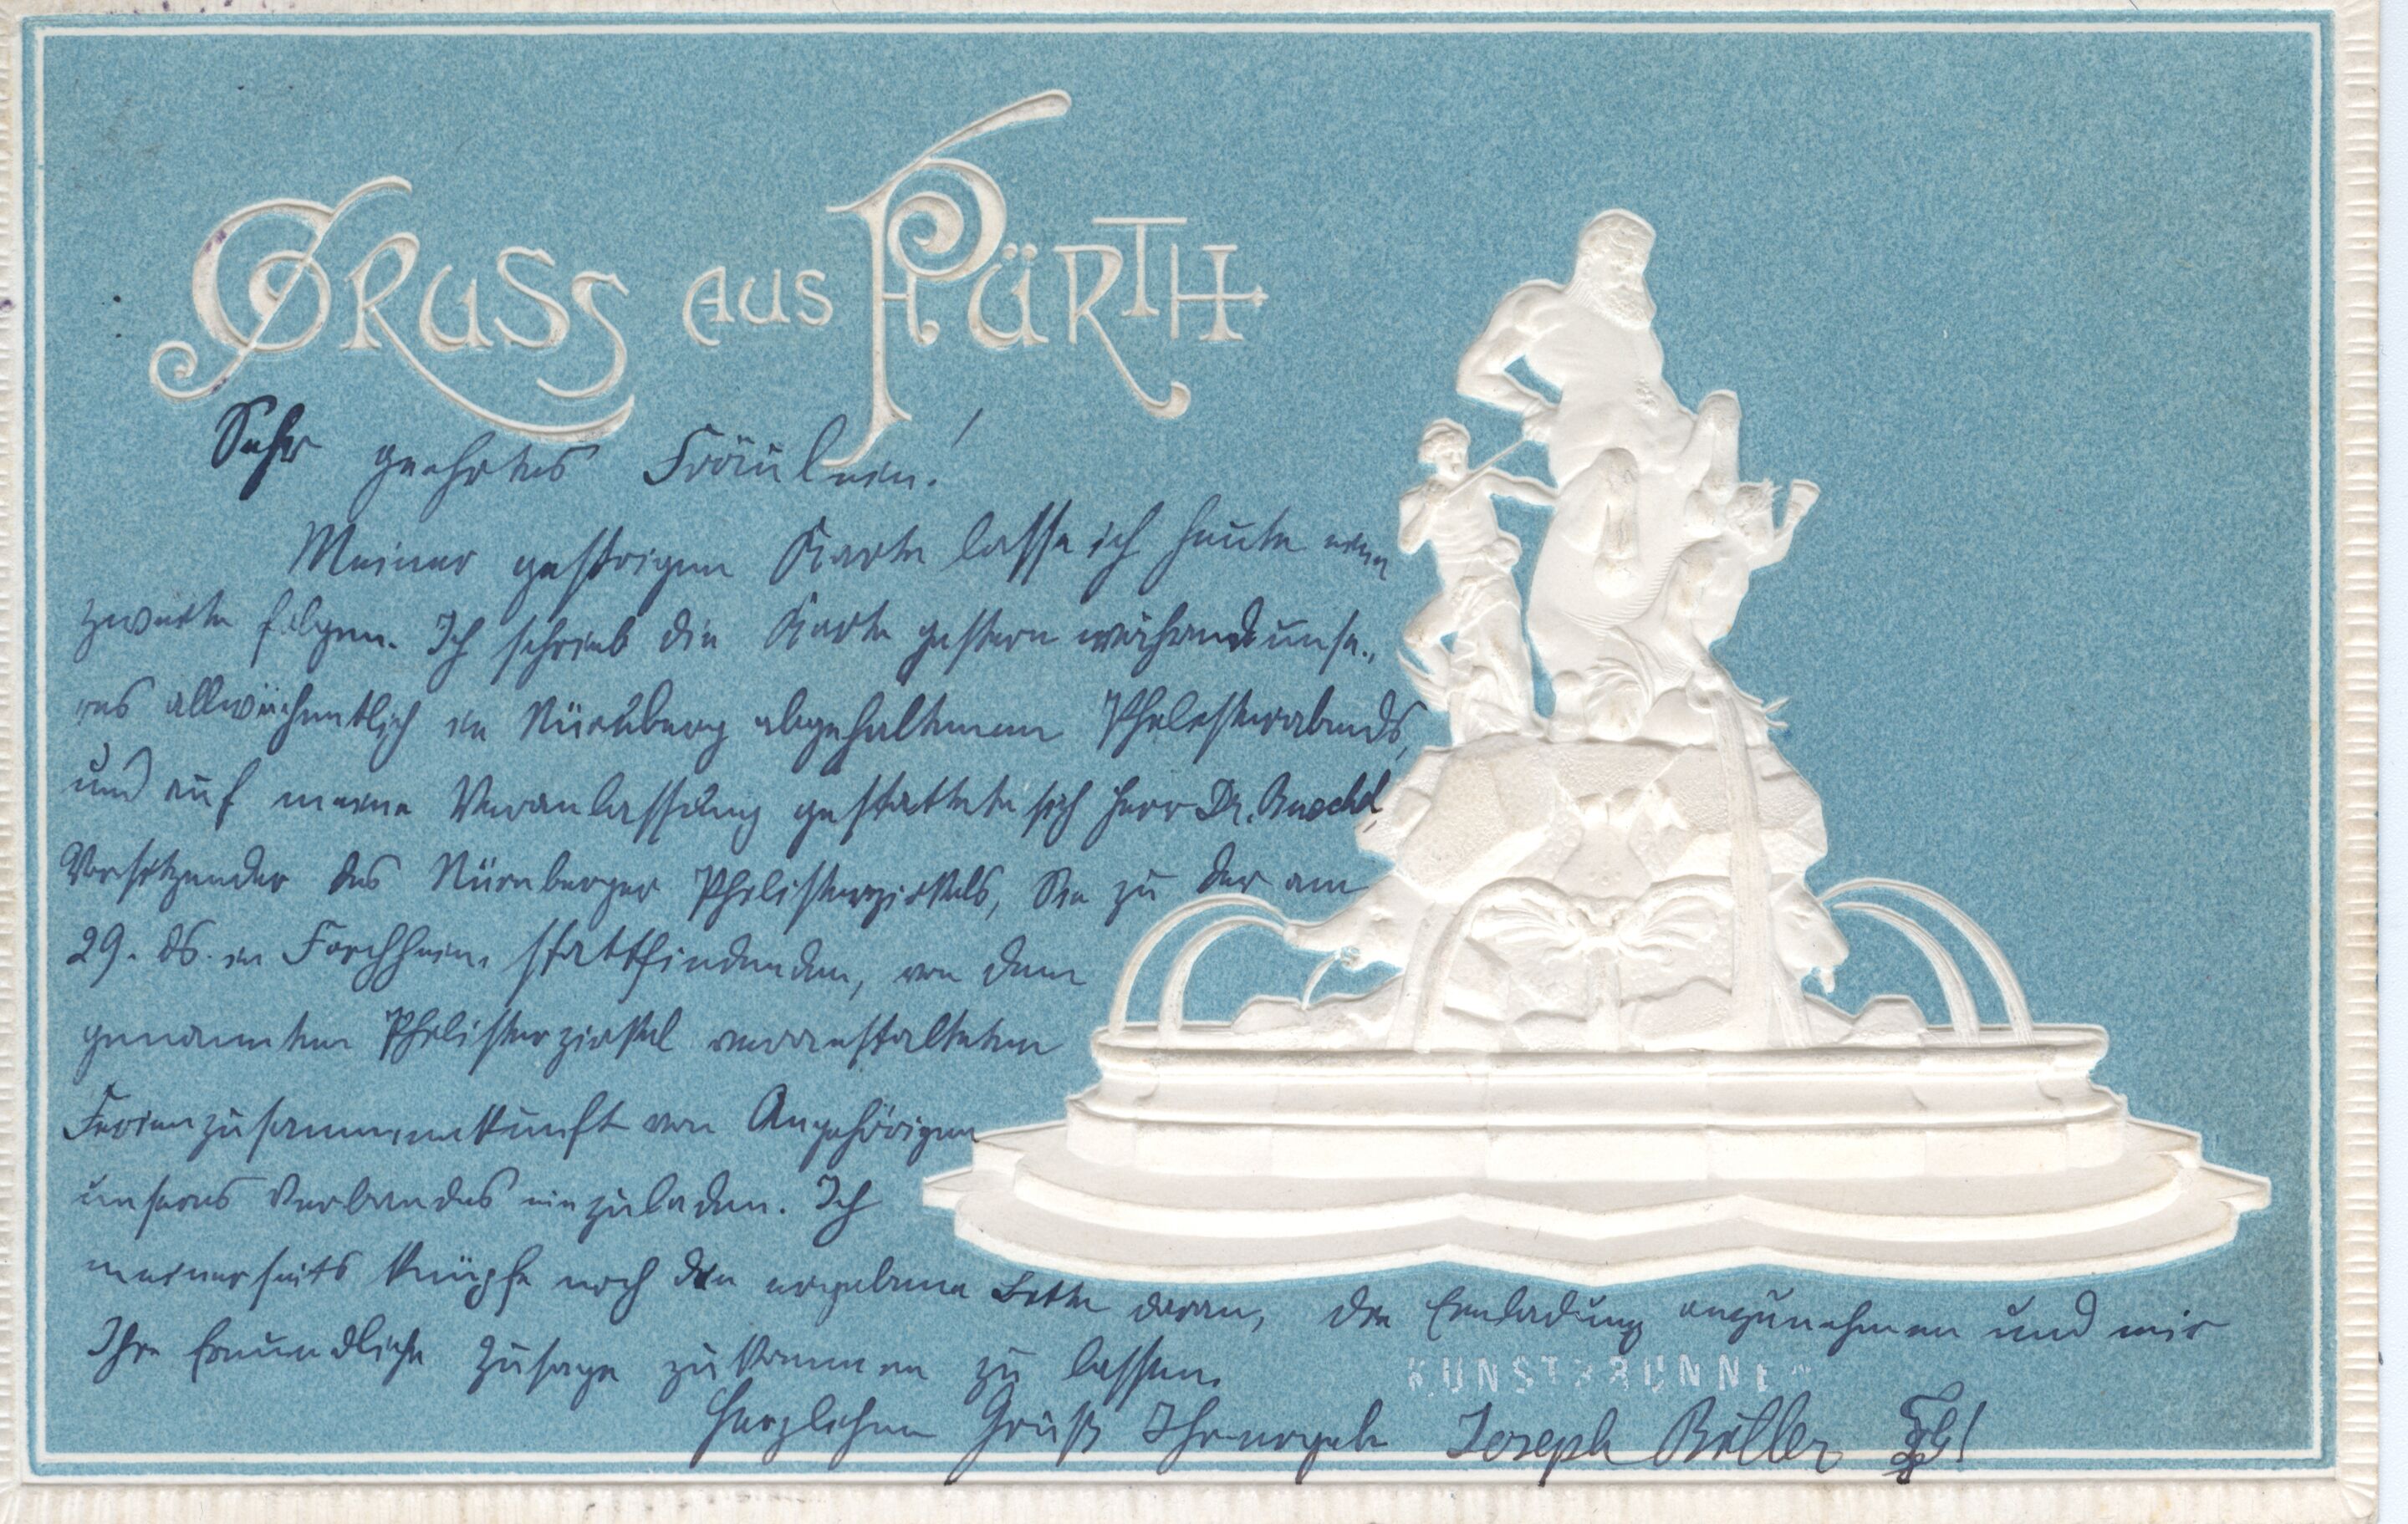 GRUSS AUS FÜRTH
Sehr geehrtes Fräulein!
Meiner gestrigen Karte lasse ich heute eine
zweite folgen. Ich schrieb die Karte gestern während unse-
res allwöchentlich in Nürnberg abgehaltenen Philisterabends,
und auf meine Veranlassung gestattete sich Herr Dr.
Vorsitzender des Nürnberger Philisterzirkels, Sie zu der am
29. ds. in Forchheim stattfindenden, von dem
genannten Philisterzirkel veranstalteten
Ferienzusammenkunft von Angehörigen
unseres Verbandes einzuladen. Ich
meinerseits knüpfe noch die ergebene Bitte daran, die Einladung anzunehmen und mir
Ihre freundliche Zusage zukommen zu lassen.
KUNSTBRUNNEN
Herzlichen Gruß Ihr ergeb. Joseph